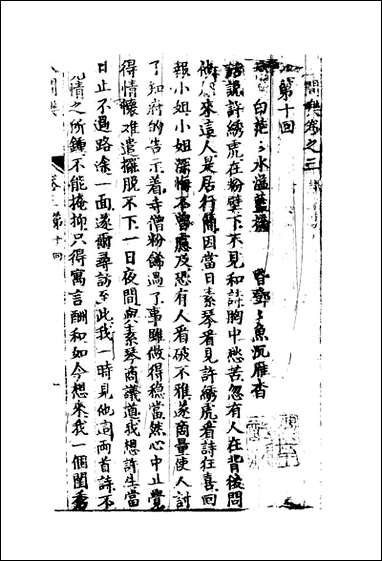 間樂卷之三
第十回
白茫茫水溢藍橋 昏鄧鄧魚沉雁杳
話說許綉虎在粉壁下不見和詩胸中愁苦忽有人在背後問
他來這人是居行簡因當日素琴看見許綉虎看詩狂喜回
報小姐小姐深悔不曾慮及恐有人看破不雅遂商量使人討
了知府的告示着寺僧粉飾過了事雖做得穩當然心中止覺
得情懷难遣擺脫不下一日夜間與素琴商議道我想許生當
日止不過路途一面遂爾尋訪至此我一時見他這兩首詩不
覺情之所鍾不能掩抑只得寓言酬和如今想來我一個閨秀
卷三 第十回
一